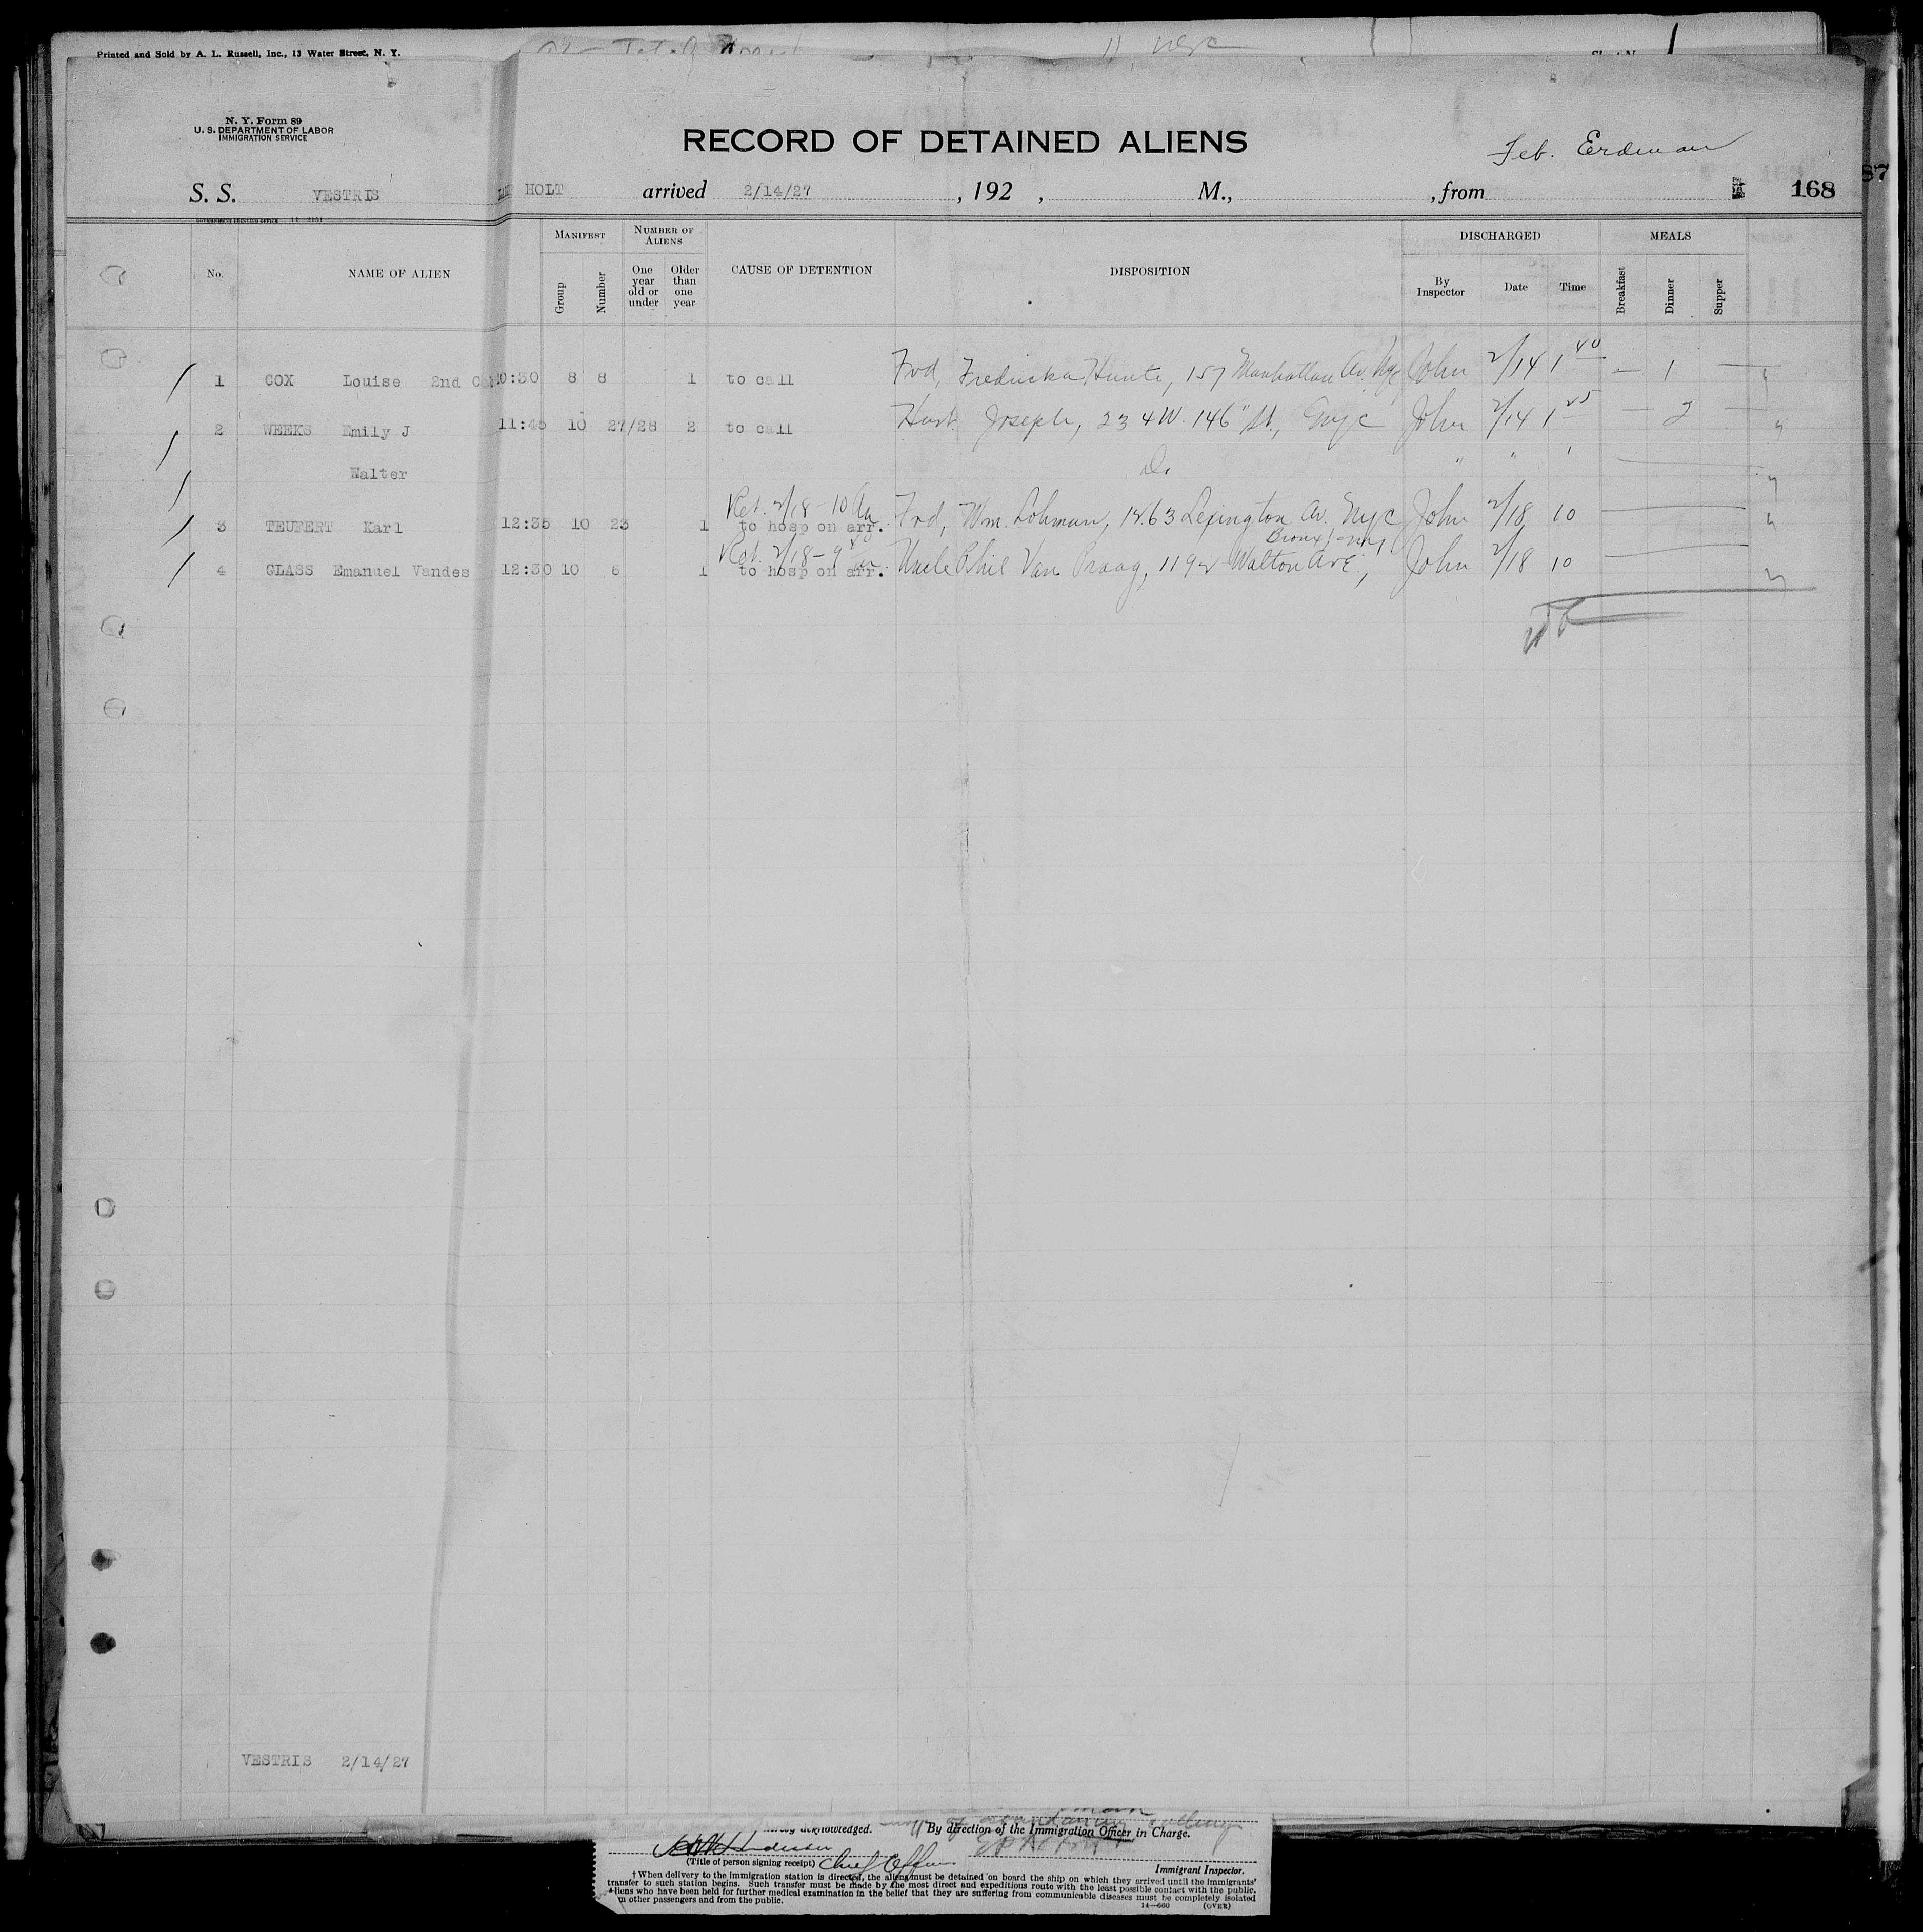 Printed and Sold by A. L. Russell, Inc., 13 Water Street, N. Y.
N. Y. Form 89
U. S. DEPARTMENT OF LABOR
IMMIGRATION SERVICE
RECORD OF DETAINED ALIENS
Feb. Erdman
S. S. VESTRIS HOLT arrived 2/14/27 , 192 , M., , from 168
No. NAME OF ALIEN MANIFEST Group Number NUMBER OF ALIENS One year old or under Older than one year CAUSE OF DETENTION DISPOSITION DISCHARGED By Inspector Date Time MEALS Breakfast Dinner Supper
1 COX Louise 2nd Cab 10:30 8 8 1 to call Frd, Fredricka Hunte, 157 Manhattan Av. Nyc John 2/14 1 40 — 1 —
2 WEEKS Emily J 11:45 10 27/28 2 to call Husb. Joseph, 234 W. 146" St., Nyc John 2/14 1 25 — 2 —
Walter Do " " '
Ret. 2/18 - 10 Am
3 TEUFERT Karl 12:35 10 23 1 to hosp on arr. Frd, Wm. Lohman, 1463 Lexington Av. Nyc John 2/18 10
Ret. 2/18 - 9 40 am Bronx, NY
4 GLASS Emanuel Vandes 12:30 10 6 1 to hosp on arr. Uncle Phil Van Praag, 1192 Walton Ave., John 2/18 10
VESTRIS 2/14/27
acknowledged. By direction of the Immigration Officer in Charge.
(Title of person signing receipt) Chief Officer Immigrant Inspector.
† When delivery to the immigration station is directed, the aliens must be detained on board the ship on which they arrived until the immigrants'
transfer to such station begins. Such transfer must be made by the most direct and expeditious route with the least possible contact with the public.
Aliens who have been held for further medical examination in the belief that they are suffering from communicable diseases must be completely isolated
from other passengers and from the public.
14—660 (OVER)